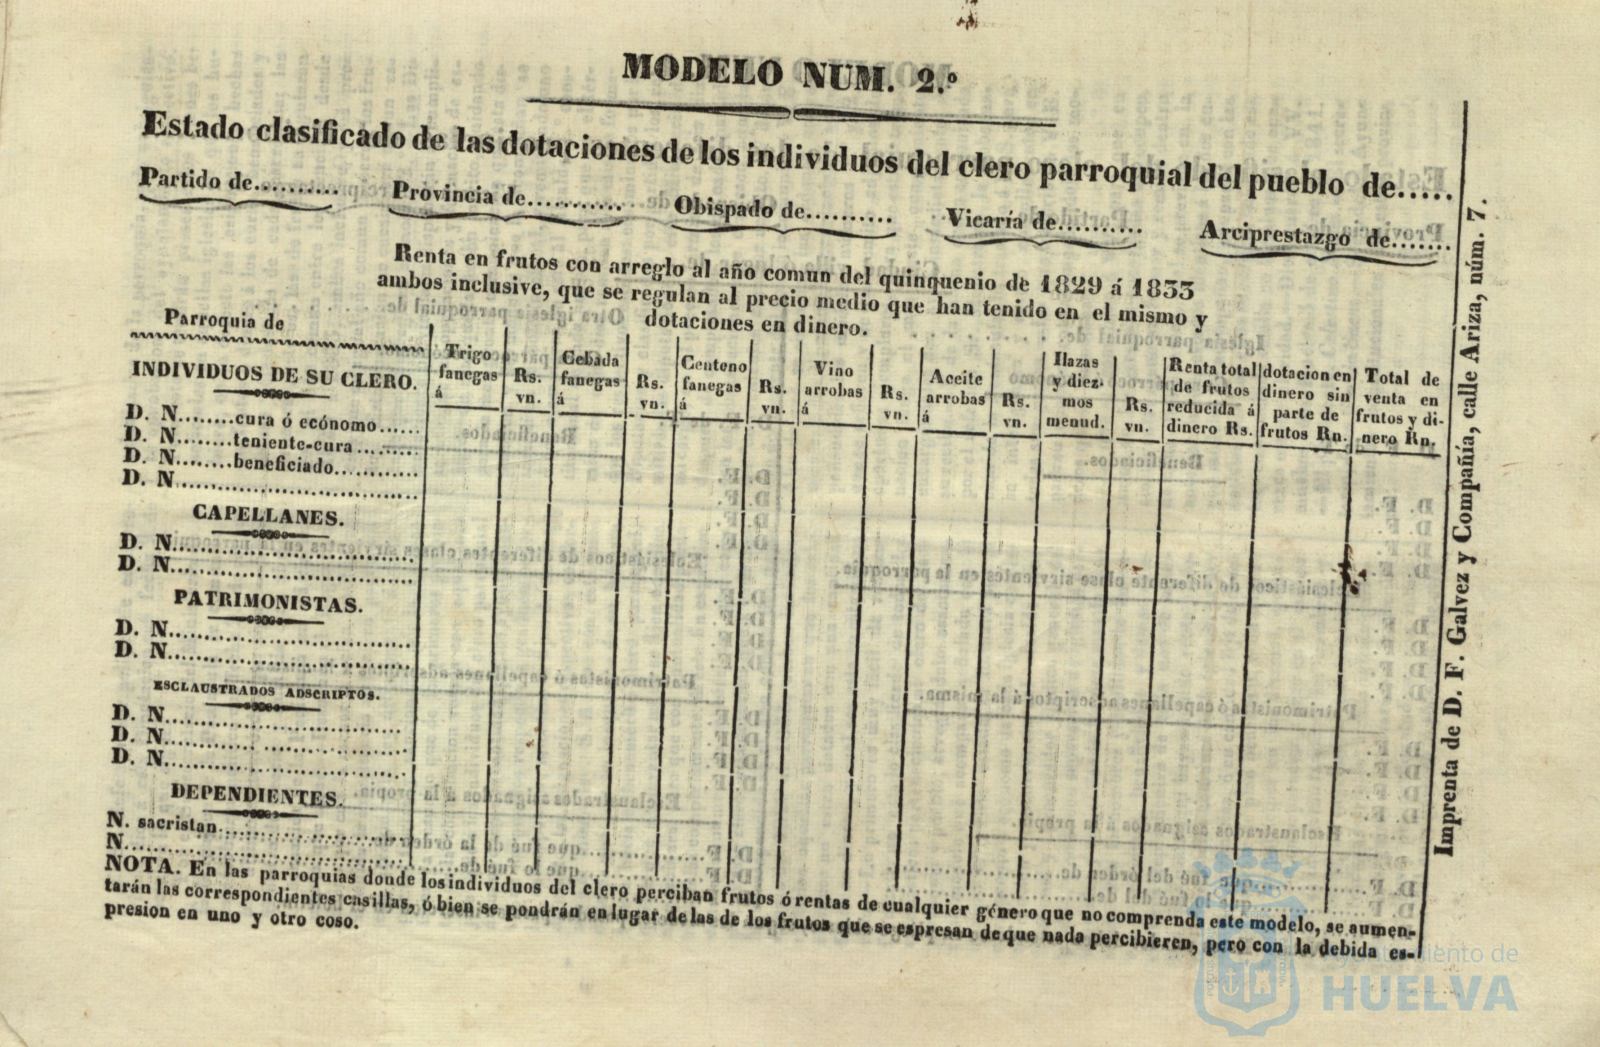 MODELO NUM. 2.º
Estado clasificado de las dotaciones de los individuos del clero parroquial del pueblo de.....
Partido de.......... Provincia de........... Obispado de.......... Vicaría de.......... Arciprestazgo de.......
Renta en frutos con arreglo al año comun del quinquenio de 1829 á 1833
ambos inclusive, que se regulan al precio medio que han tenido en el mismo y
dotaciones en dinero.
Parroquia de
INDIVIDUOS DE SU CLERO.
Trigo
fanegas
á
Rs.
vn.
Cebada
fanegas
á
Rs.
vn.
Centeno
fanegas
á
Rs.
vn.
Vino
arrobas
á
Rs.
vn.
Aceite
arrobas
á
Rs.
vn.
Hazas
y diez-
mos
menud.
Rs.
vn.
Renta total
de frutos
reducida á
dinero Rs.
dotacion en
dinero sin
parte de
frutos Rn.
Total de
venta en
frutos y di-
nero Rn.
D. N........cura ó ecónomo......
D. N........teniente-cura.........
D. N........beneficiado............
D. N...................................
CAPELLANES.
D. N...................................
D. N...................................
PATRIMONISTAS.
D. N...................................
D. N...................................
ESCLAUSTRADOS ADSCRIPTOS.
D. N...................................
D. N...................................
D. N...................................
DEPENDIENTES.
N. sacristan...........................
N.......................................
NOTA. En las parroquias donde los individuos del clero perciban frutos ó rentas de cualquier género que no comprenda este modelo, se aumen-
tarán las correspondientes casillas, ó bien se pondrán en lugar de las de los frutos que se espresan de que nada percibieren, pero con la debida es-
presion en uno y otro coso.
Imprenta de D. F. Galvez y Compañía, calle Ariza, núm. 7.
Ayuntamiento de
HUELVA